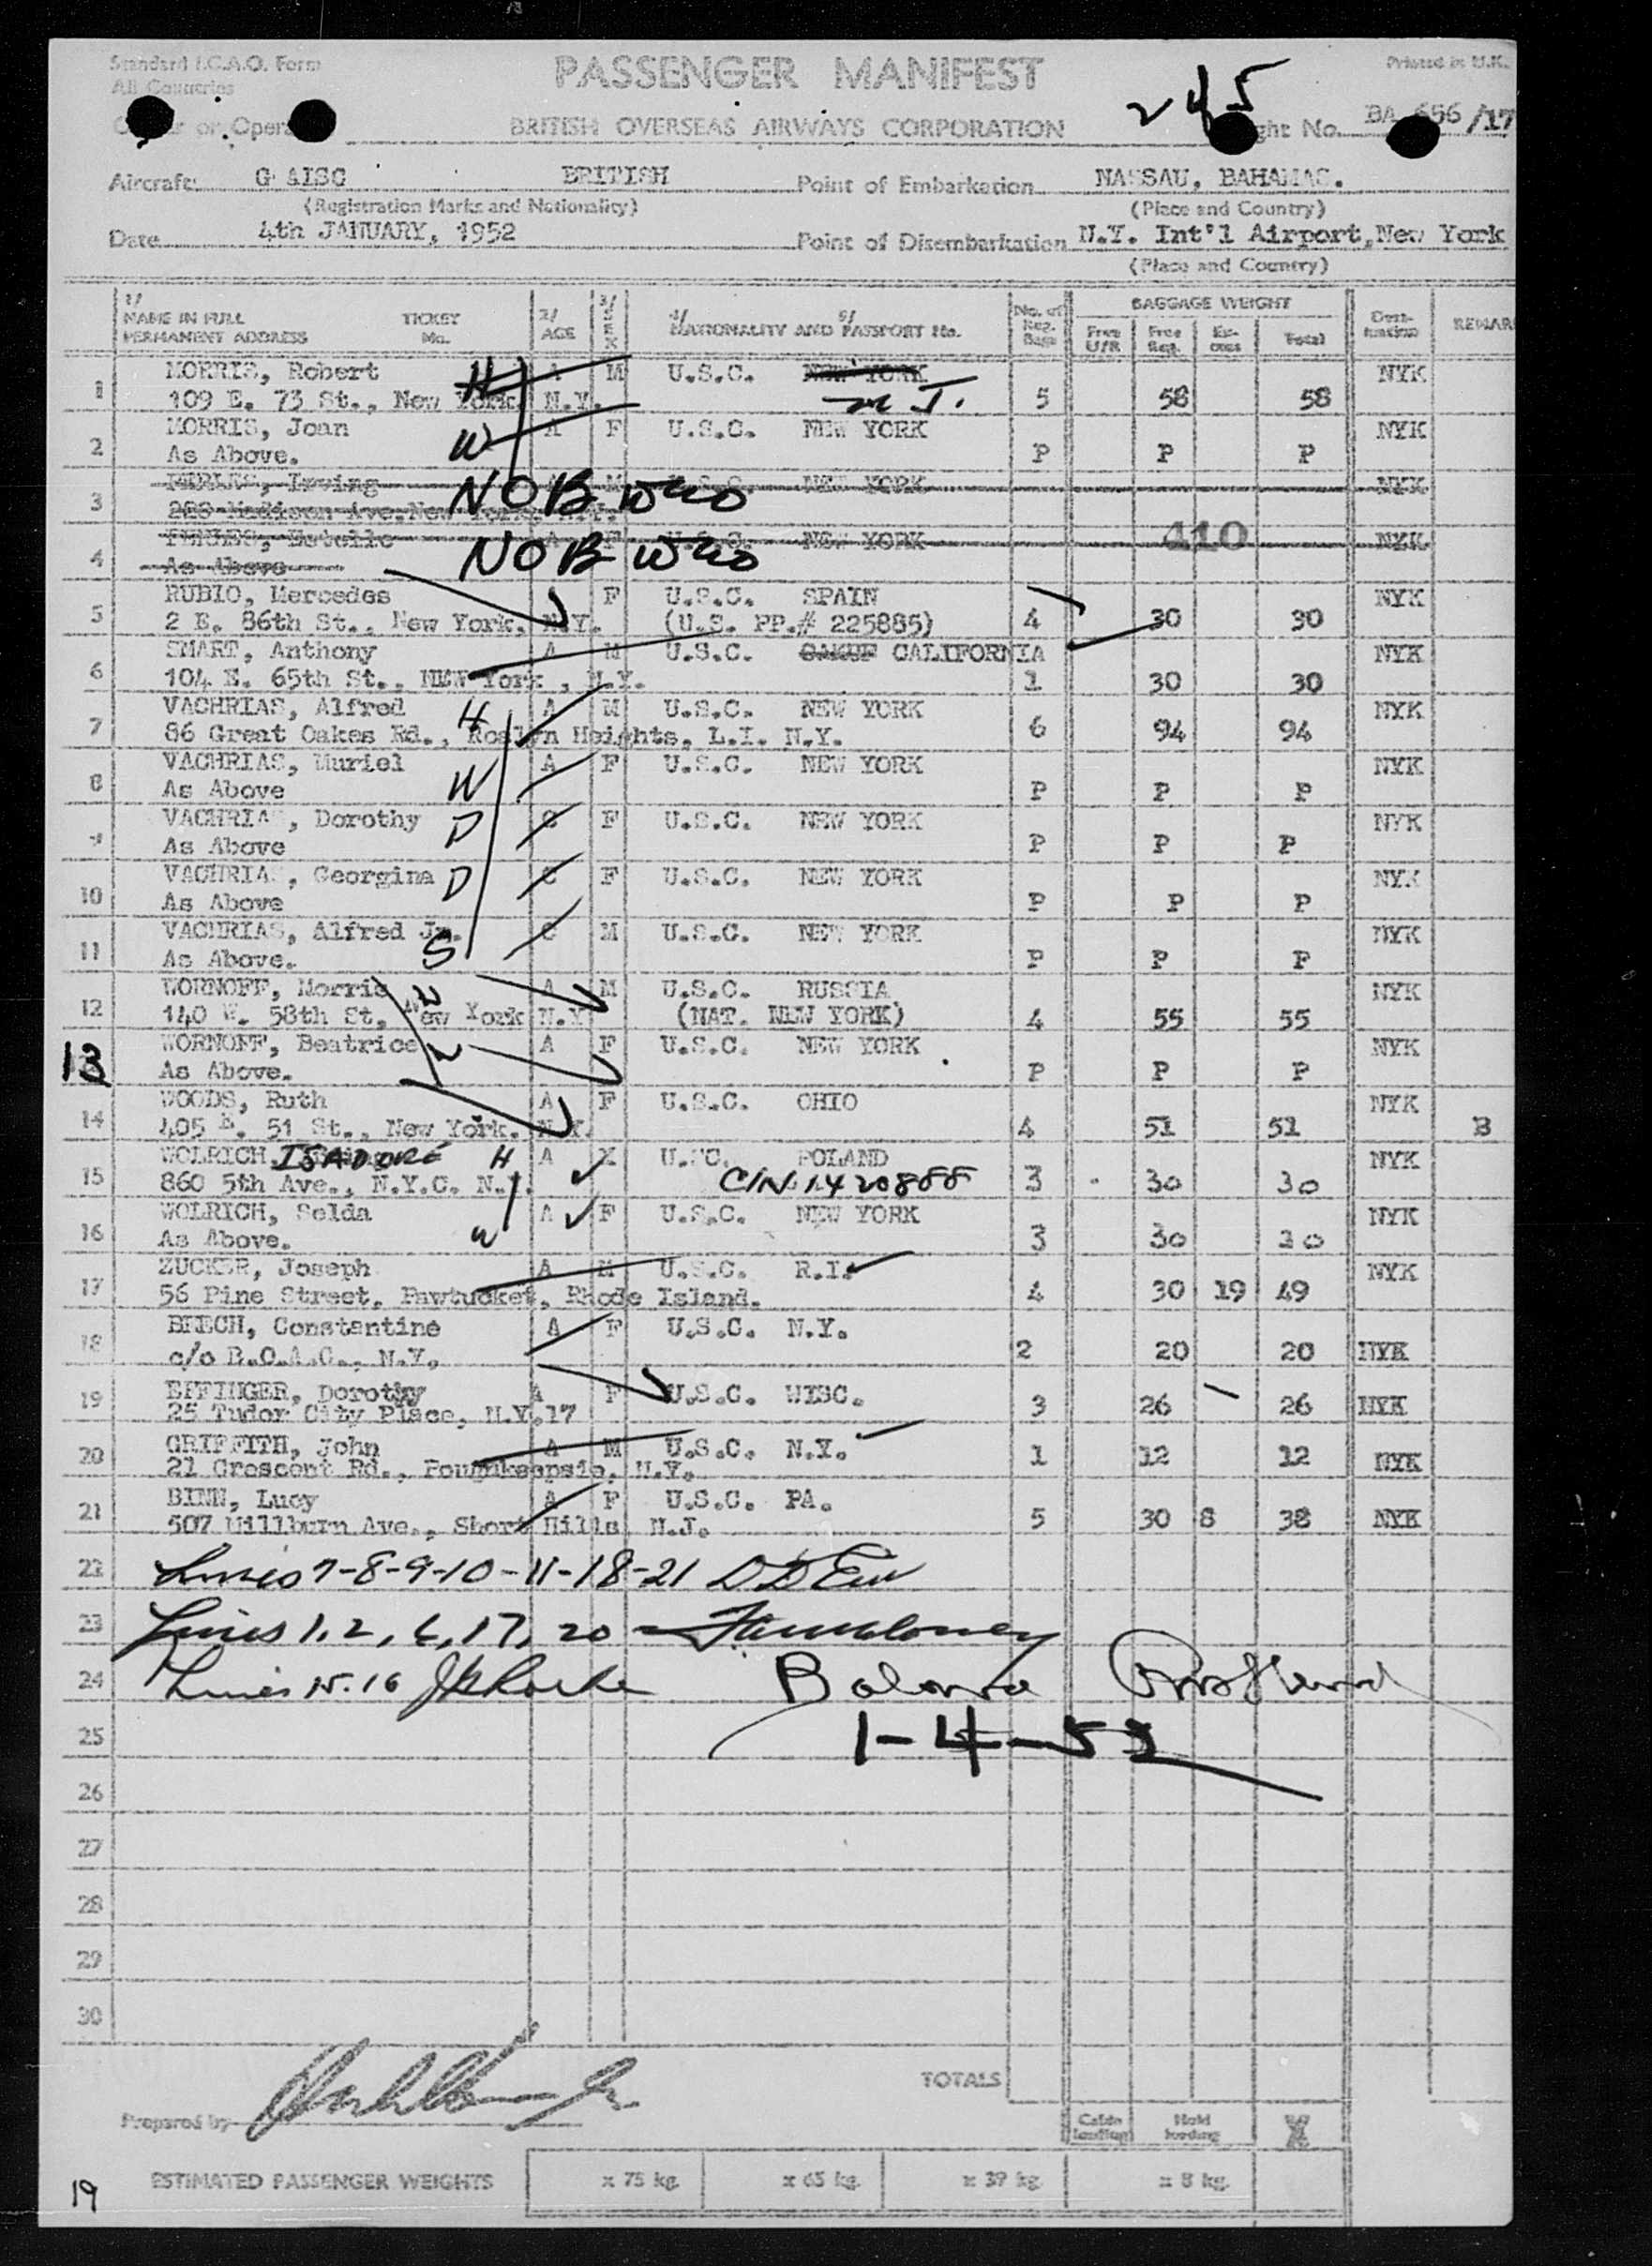 Standard I.C.A.O. Form
All Countries
PASSENGER MANIFEST
Printed in U.K.
245
BRITISH OVERSEAS AIRWAYS CORPORATION
No. BA 656/17
Aircraft: G AISC BRITISH Point of Embarkation NASSAU, BAHAMAS.
(Registration Marks and Nationality) (Place and Country)
Date 4th JANUARY, 1952 Point of Disembarkation N.Y. Int'l Airport, New York
(Place and Country)
1/ NAME IN FULL TICKET 2/ 3/ 4/ 5/ No. of BAGGAGE WEIGHT
PERMANENT ADDRESS No. AGE SEX NATIONALITY AND PASSPORT No. Reg. Bags Free U/R Free Reg. Ex-cess Total Desti-nation REMAR
1 MORRIS, Robert H A M U.S.C. NEW YORK NYK
109 E. 73 St., New York, N.Y. N J. 5 58 58
2 MORRIS, Joan W A F U.S.C. NEW YORK NYK
As Above. P P P
3 Irving NO B M NEW YORK NYK
Madison Ave. New York
4 NO B NEW YORK 410 NYK
As Above
5 RUBIO, Mercedes F U.S.C. SPAIN NYK
2 E. 86th St., New York, N.Y. (U.S. PP.# 225885) 4 30 30
6 SMART, Anthony A M U.S.C. CALIFORNIA NYK
104 E. 65th St., NEW York, N.Y. 1 30 30
7 VACHRIAS, Alfred H A M U.S.C. NEW YORK NYK
86 Great Oakes Rd., Roslyn Heights, L.I. N.Y. 6 94 94
8 VACHRIAS, Muriel W A F U.S.C. NEW YORK NYK
As Above P P P
9 VACHRIAS, Dorothy D C F U.S.C. NEW YORK NYK
As Above P P P
10 VACHRIAS, Georgina D C F U.S.C. NEW YORK NYK
As Above P P P
11 VACHRIAS, Alfred Jr. S C M U.S.C. NEW YORK NYK
As Above. P P P
12 WORNOFF, Morris A M U.S.C. RUSSIA NYK
140 W. 58th St, New York N.Y. (NAT. NEW YORK) 4 55 55
13 WORNOFF, Beatrice A F U.S.C. NEW YORK NYK
As Above. P P P
14 WOODS, Ruth A F U.S.C. OHIO NYK
405 E. 51 St., New York. N.Y. 4 51 51 B
15 WOLRICH, ISADORE H A U.S.C. POLAND NYK
860 5th Ave., N.Y.C. N.Y. C/N 1420888 3 30 30
16 WOLRICH, Selda A F U.S.C. NEW YORK NYK
As Above. W 3 30 30
17 ZUCKER, Joseph A M U.S.C. R.I. NYK
56 Pine Street, Pawtucket, Rhode Island. 4 30 19 49
18 BEECH, Constantine A F U.S.C. N.Y.
c/o B.O.A.C., N.Y. 2 20 20 NYK
19 EFFINGER, Dorothy A F U.S.C. WISC.
25 Tudor City Place, N.Y.17 3 26 26 NYK
20 GRIFFITH, John A M U.S.C. N.Y.
21 Crescent Rd., Poughkeepsie, N.Y. 1 12 12 NYK
21 BINN, Lucy A F U.S.C. PA.
507 Millburn Ave., Short Hills, N.J. 5 30 8 38 NYK
22 Lines 7-8-9-10-11-18-21
23 Lines 1, 2, 6, 17, 20
24 Lines 15-16 Balance
25 1-4-52
26
27
28
29
30
TOTALS
Prepared by
Cabin loading Hold loading
ESTIMATED PASSENGER WEIGHTS x 75 kg. x 65 kg. x 39 kg. x 8 kg.
19